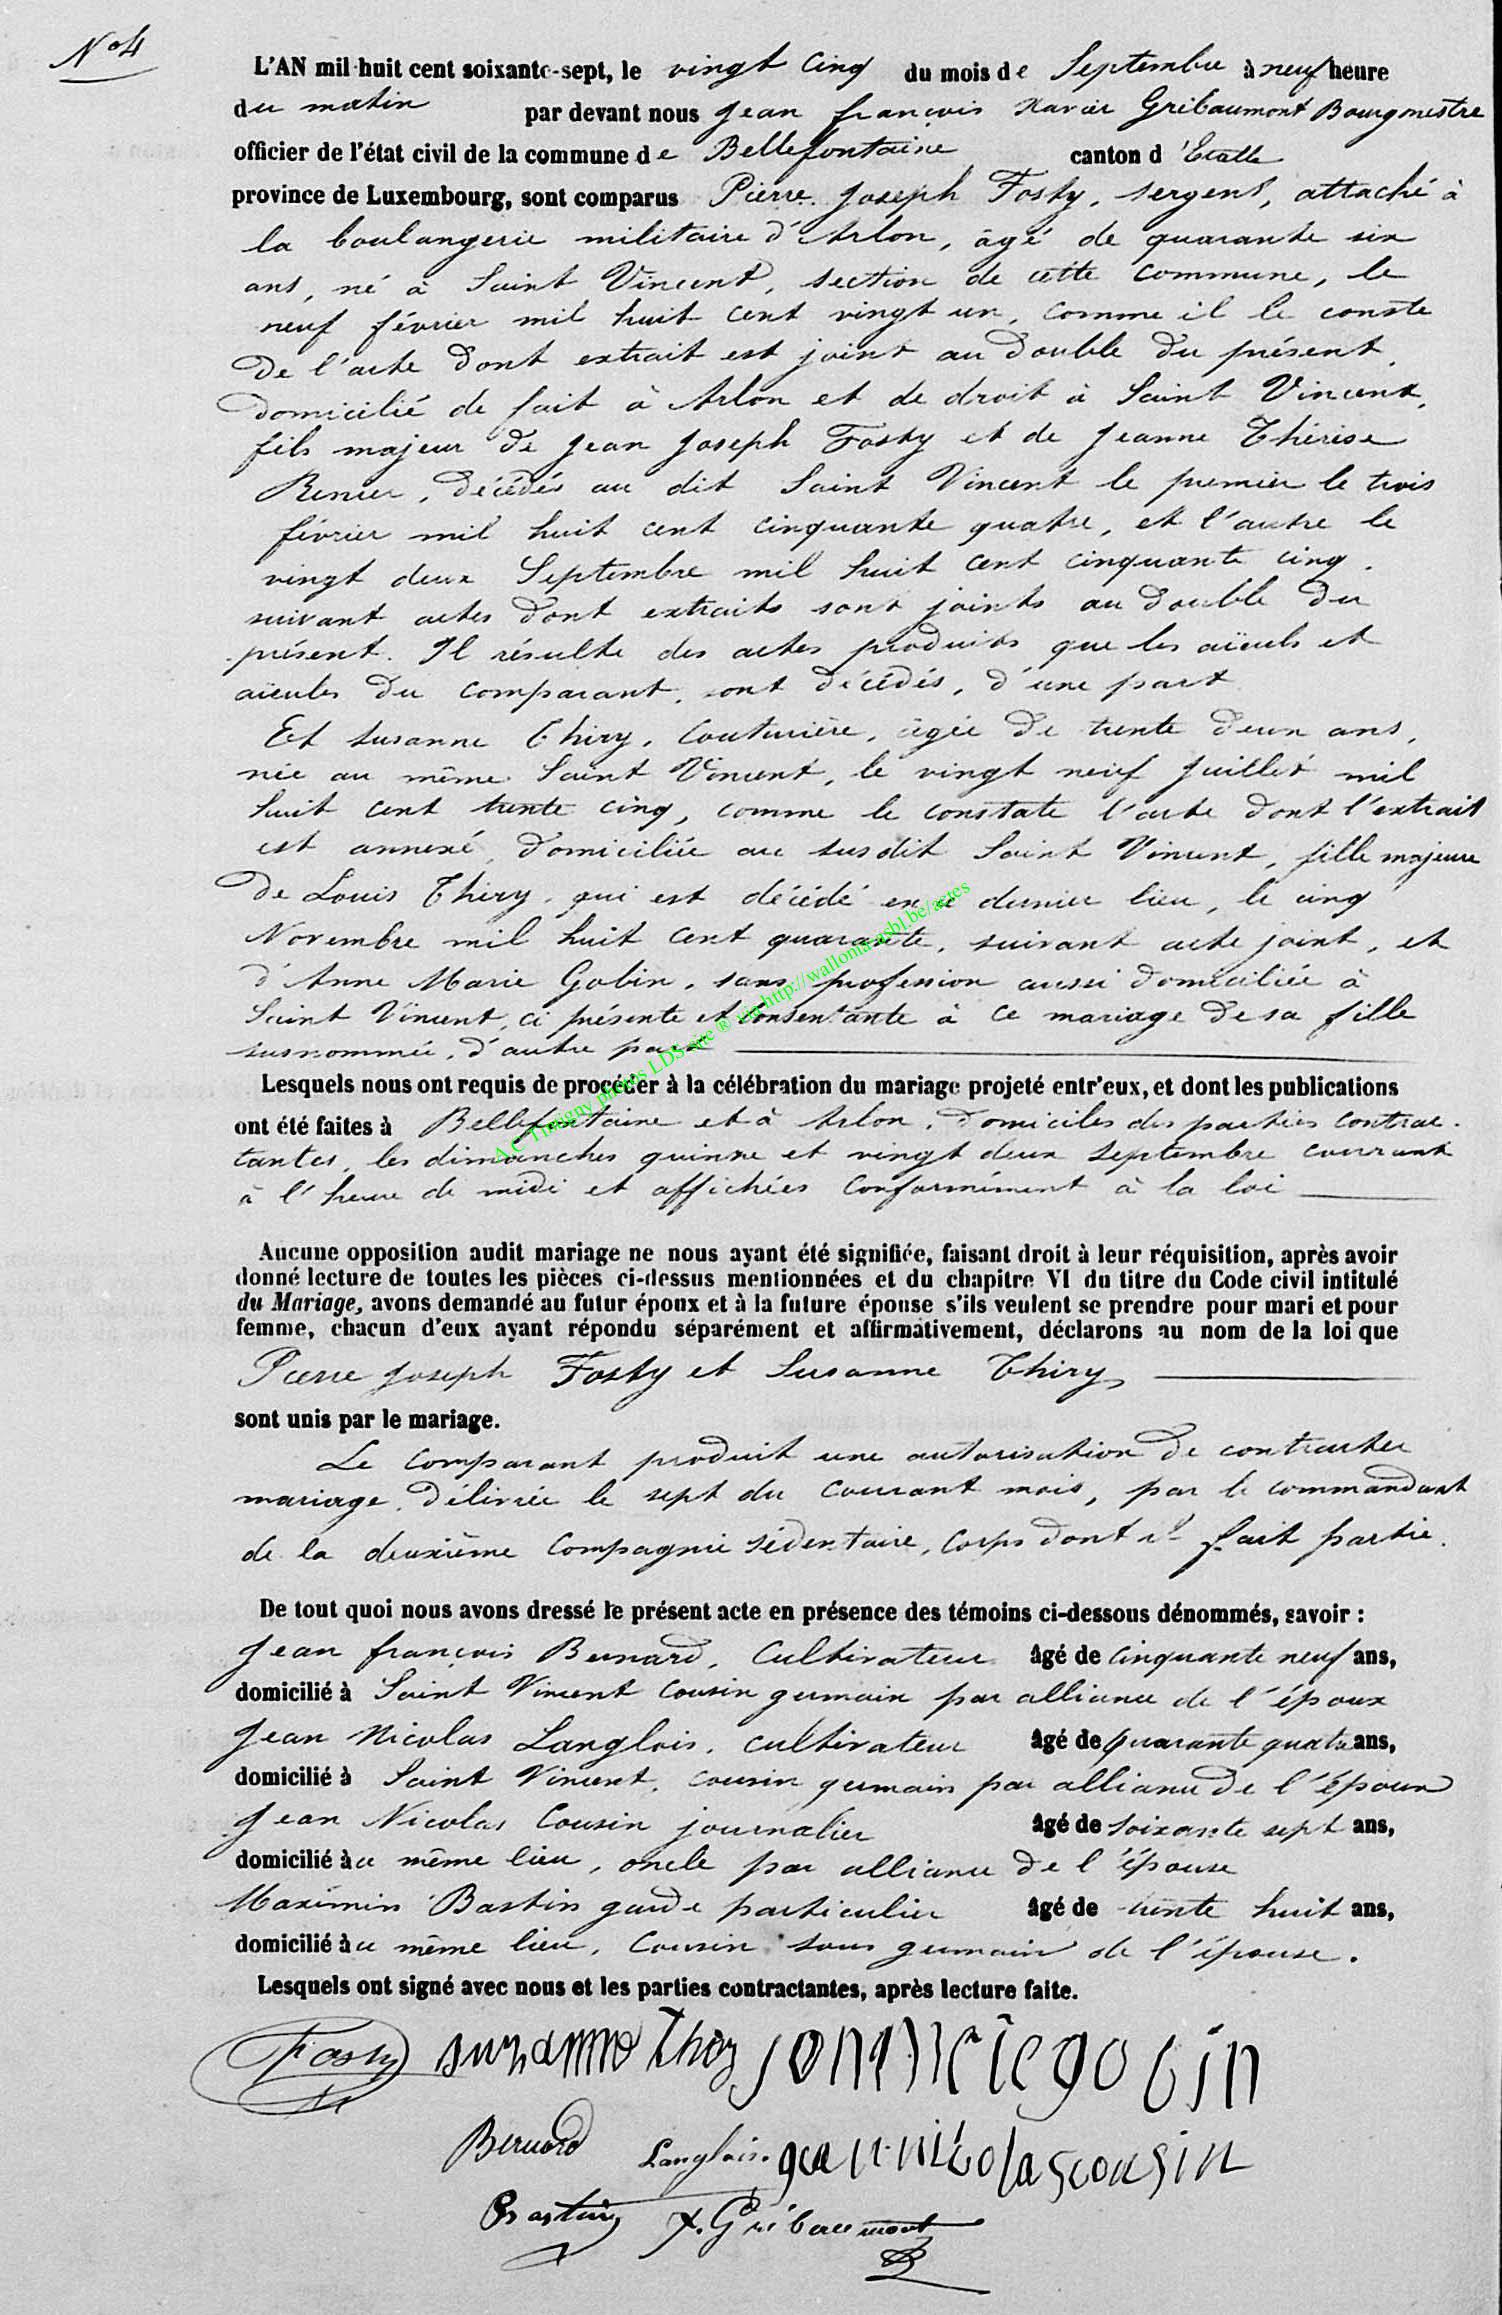 N° 4
L'AN mil huit cent soixante-sept, le vingt cinq du mois de Septembre à neuf heure
du matin par devant nous Jean françois Xavier Gribaumont Bourgmestre
officier de l'état civil de la commune de Bellefontaine canton d'Etalle
province de Luxembourg, sont comparus Pierre Joseph Fosty, sergent, attaché à
la boulangerie militaire d'Arlon, âgé de quarante six
ans, né à Saint Vincent, section de cette commune, le
neuf février mil huit cent vingt un, comme il le conste
de l'acte dont extrait est joint au double du présent,
domicilié de fait à Arlon et de droit à Saint Vincent,
fils majeur de Jean Joseph Fosty et de Jeanne Thérèse
Renier, décédés au dit Saint Vincent le premier le trois
février mil huit cent cinquante quatre, et l'autre le
vingt deux Septembre mil huit cent cinquante cinq.
suivant actes dont extraits sont joints au double du
présent. Il résulte des actes produits que les aïeuls et
aïeules du comparant, sont décédés, d'une part
Et Susanne Thiry, Couturière, âgée de trente deux ans,
née au même Saint Vincent, le vingt neuf Juillet mil
huit cent trente cinq, comme le constate l'acte dont l'extrait
est annexé, domiciliée au susdit Saint Vincent, fille majeure
de Louis Thiry, qui est décédé en ce dernier lieu, le cinq
Novembre mil huit cent quarante, suivant acte joint, et
d'Anne Marie Gobin, sans profession aussi domiciliée à
Saint Vincent, ci présente et consentante à ce mariage de sa fille
susnommée, d'autre part
Lesquels nous ont requis de procéder à la célébration du mariage projeté entr'eux, et dont les publications
ont été faites à Bellefontaine et à Arlon, domiciles des parties contrac-
tantes, les dimanches quinze et vingt deux Septembre courrant
à l'heure de midi et affichées conformément à la loi
Aucune opposition audit mariage ne nous ayant été signifiée, faisant droit à leur réquisition, après avoir
donné lecture de toutes les pièces ci-dessus mentionnées et du chapitre VI du titre du Code civil intitulé
du Mariage, avons demandé au futur époux et à la future épouse s'ils veulent se prendre pour mari et pour
femme, chacun d'eux ayant répondu séparément et affirmativement, déclarons au nom de la loi que
Pierre Joseph Fosty et Susanne Thiry
sont unis par le mariage.
Le comparant produit une autorisation de contracter
mariage, délivrée le sept du courrant mois, par le commandant
de la deuxième Compagnie sédentaire, Corps dont il fait partie.
De tout quoi nous avons dressé le présent acte en présence des témoins ci-dessous dénommés, savoir :
Jean françois Bernard, Cultivateur âgé de cinquante neuf ans,
domicilié à Saint Vincent Cousin germain par alliance de l'époux
Jean Nicolas Langlois, cultivateur âgé de quarante quatre ans,
domicilié à Saint Vincent, cousin germain par alliance de l'époux
Jean Nicolas Cousin journalier âgé de soixante sept ans,
domicilié à ce même lieu, oncle par alliance de l'épouse
Maximin Bastin garde particulier âgé de trente huit ans,
domicilié à ce même lieu, Cousin sous germain de l'épouse.
Lesquels ont signé avec nous et les parties contractantes, après lecture faite.
Fosty susanne Thiry gobin
Bernard Langlois. nicolas cousin
Bastin X. Gribaumont
A.C Tintigny photos LDS site ® via http://wallonia-asbl.be/actes